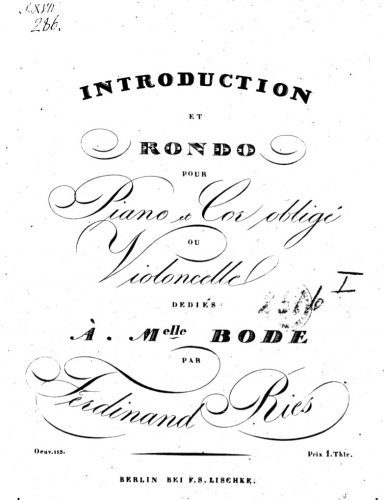 S.XVII
286.
INTRODUCTION
ET
RONDO
POUR
Piano et Cor obligé
OU
Violoncelle
DEDIÉS
I
À. Melle BODE
PAR
Ferdinand Ries
Oeuv.113. Prix 1.Thlr.
BERLIN BEI F.S. LISCHKE.